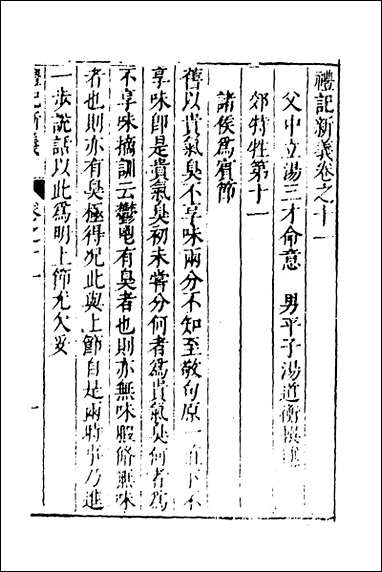 禮記新義卷之十一
父中立湯三才命意　男平子湯道衡
郊特牲第十一
諸侯爲賓節
舊以貴氣臭不享味兩分不知至敬句原一直下不
享味卽是貴氣臭初未嘗分何者爲貴氣臭何者爲
不享味摘訓云鬱鬯有臭者也則亦無味腶脩無味
者也則亦有臭極得况此與上節自是兩時事乃進
一步說話以此爲明上節尤欠妥
禮記新義　卷之十一　一